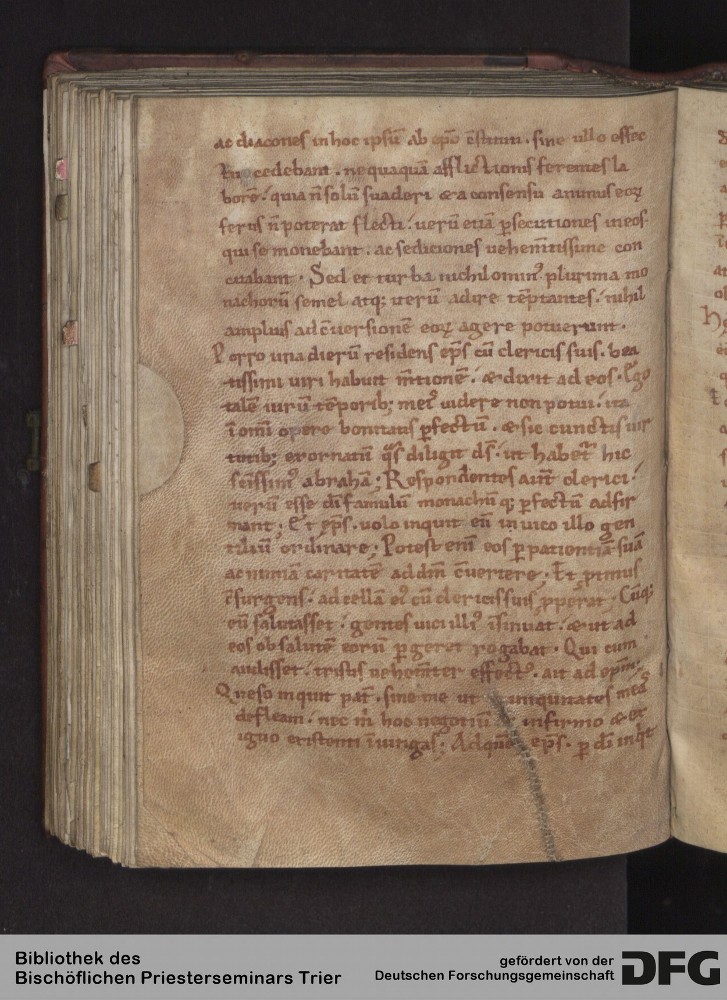 ac diacones in hoc ipsū ab epō cōstituti. sine ullo effec
tu cedebant. nequaquā afflictionis ferentes la
borē. quia n̄ solū suaderi & a consensu animus eoꝝ
ferus n̄ poterat flecti. uerū etiā ꝑsecutiones in eos
qui se monebant. ac sediciones uehem̄tissime con
citabant. Sed et turba nichilomin᷒ plurima mo
nachorū semel atq; iterū adire tēptantes. nihil
amplius ad cūersionē eoꝝ agere potuerunt.
Porro una dierū residens ep̄s cū clericis suis. bea
tissimi uiri habuit m̄tionē. & dixit ad eos. Ego
talē uirū tēporib; meis uidere non potui. ita
ī omī opere bonitatis ꝑfectū. & sic cunctis uir
tutib; exornatū q̄s diligit ds̄. ut habet᷑ hic
sc̄issim᷒ abrahā; Respondentes aut̄ clerici.
uerū esse dī famulū monachū q; ꝑfectū adfir
mant; Et ep̄s. uolo inquit eū in uico illo gen
tiliū ordinare; Potest enī eos ꝑ patientiā suā
ac nimiā caritatē ad dn̄m cūertere. Et ꝓtinus
īsurgens. ad cellā ei᷒ cū clericis suis ꝓperat. Cūq;
eū salutasset. gentes uici illi᷒ īsinuat. & ut ad
eos ob salutē eorū ꝑgeret rogabat. Qui cum
audisset. tristis uehem̄ter effect᷒. ait ad ep̄m.
Queso inquit pat̄. sine me ut iniquitates meas
defleam. nec m̄ hoc negotiū infirmo & ex
iguo existenti īiungas; Ad quē ep̄s. ꝑ dī inq̄t
Bibliothek des
Bischöflichen Priesterseminars Trier
gefördert von der
Deutschen Forschungsgemeinschaft
DFG